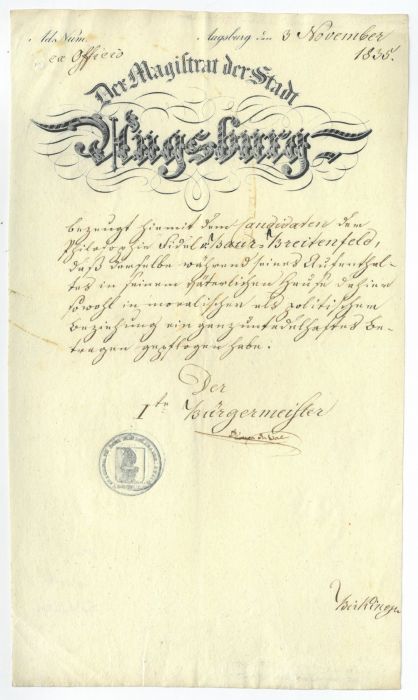 Ad Num.
ex Officio
Augsburg den 3 November
1835.
Der Magistrat der Stadt
Augsburg
bezeugt hiermit dem Candidaten der
Philosophie Fidel v Baur-Breitenfeld,
daß derselbe während seines Aufenthal-
tes in seinem väterlichen Hause dahier
sowohl in moralischer als politischer
Beziehung ein ganz untadelhaftes Be-
tragen gepflogen habe.
Der
Ite Bürgermeister